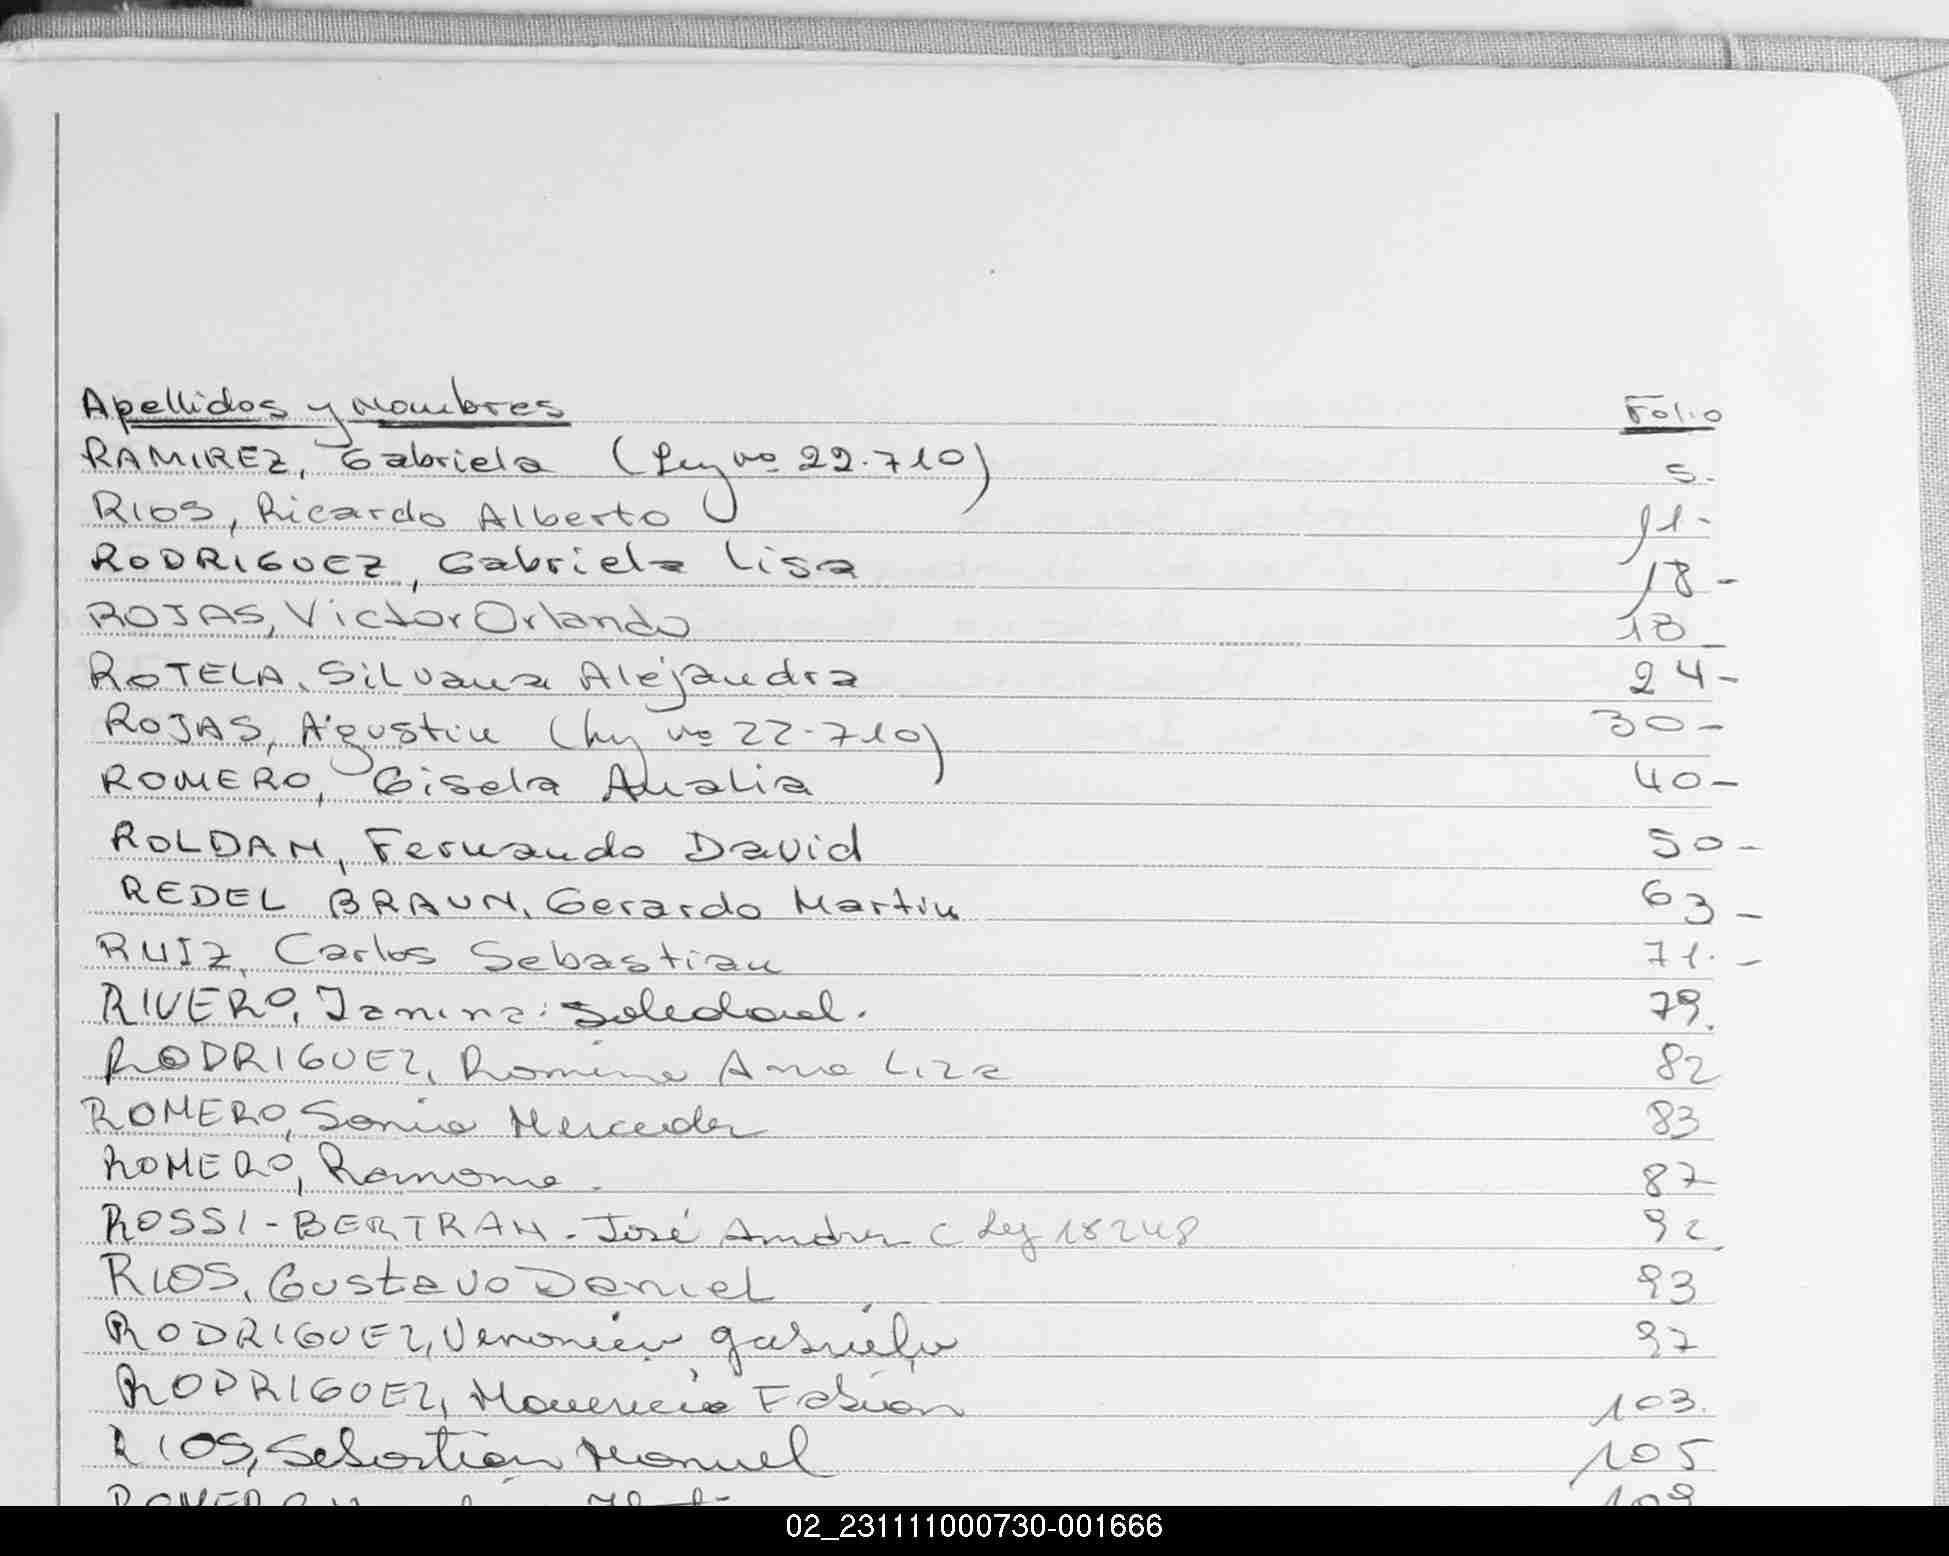 Apellidos y Nombres Folio
RAMIREZ, Gabriela (Ley nº 22.710) 5.
RIOS, Ricardo Alberto 11-
RODRIGUEZ, Gabriela Lisa 18-
ROJAS, Victor Orlando 18_
ROTELA, Silvana Alejandra 24-
ROJAS, Agustin (Ley nº 22.710) 30-
ROMERO, Gisela Analia 40-
ROLDAN, Fernando David 50-
REDEL BRAUN, Gerardo Martin 63-
RUIZ, Carlos Sebastian 71.-
RIVERO, Janina Soledad. 79.
RODRIGUEZ, Romina Ana Liza 82
ROMERO, Sonia Mercedes 83
ROMERO, Ramona. 87
ROSSI-BERTRAN. José Andres (Ley 18248 92
RIOS, Gustavo Daniel 93
RODRIGUEZ, Veronica gabriela 97
RODRIGUEZ, Mauricio Fabián 103.
RIOS, Sebastian Manuel 105
ROMERO 109
02_231111000730-001666